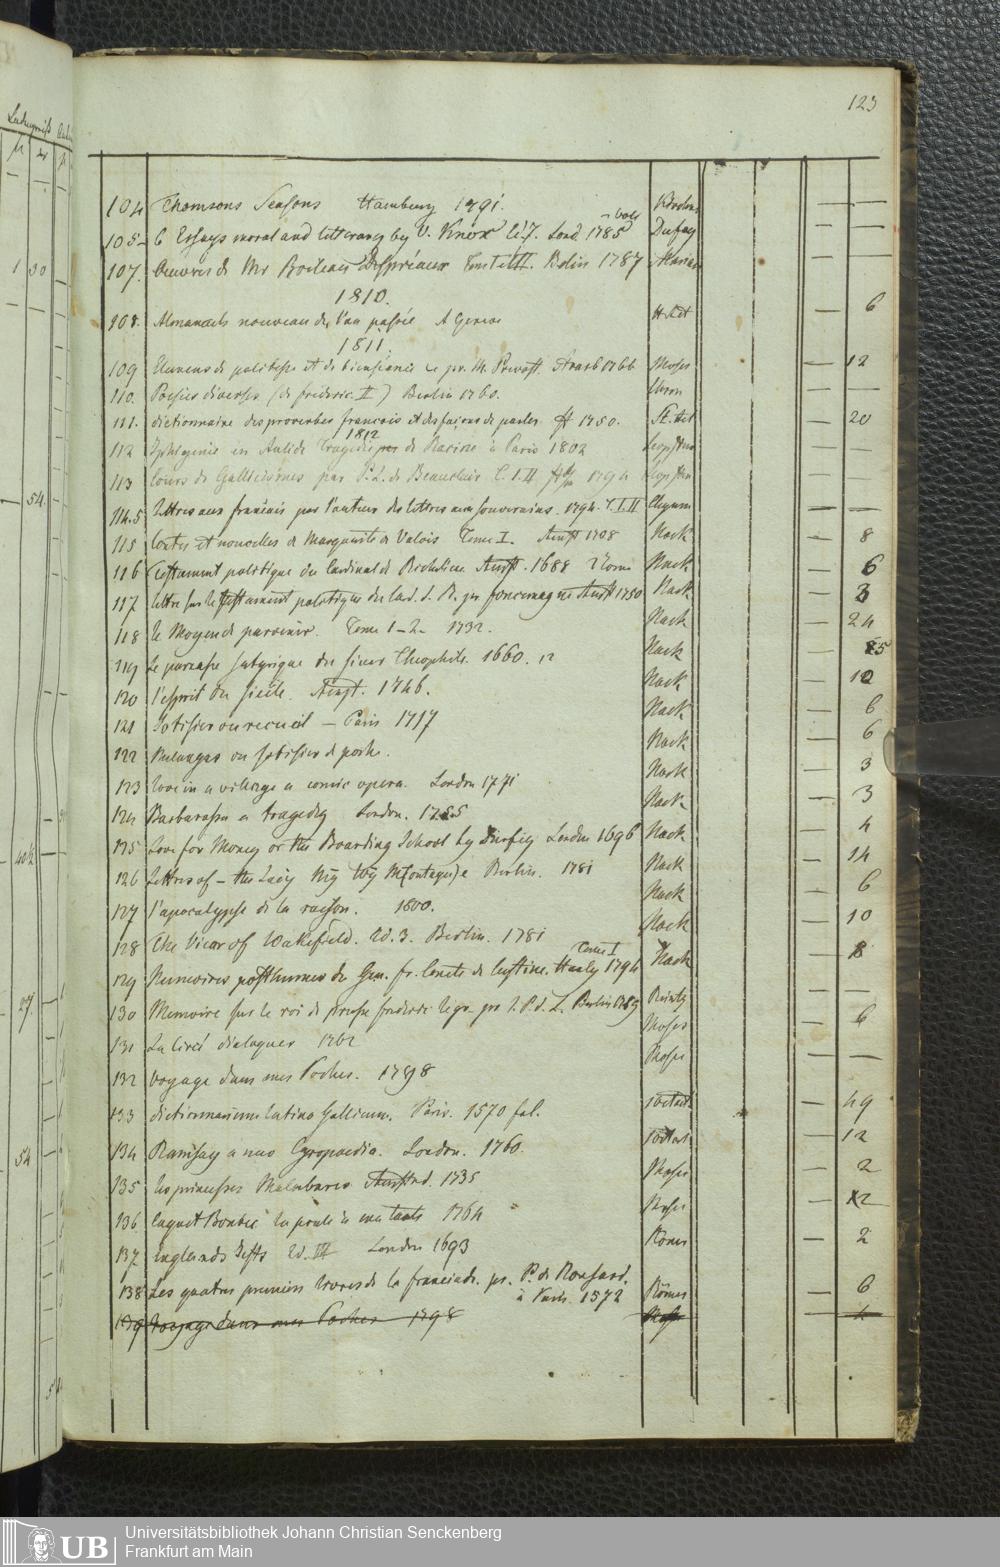 123
104 Thomsons Seasons Hamburg 1791. — —
105- 6 Essays moral and litterary by V. Knox Lond 1785 vols Dufay — —
107. Oeuvres de Mr Boileau Despréaux Berlin 1787 — —
1810.
108. Almanachs nouveau de l'an passée A Geneve 6
1811.
109 Elemens de politesse et de bienseance pr. Mr. Prevost. Strasb 1766 Moses — 12
110. Poesies diverses (de frederic II) Berlin 1760. — —
111. dictionnaire des proverbes francois et des façons de parler ff 1750. — 20
1812
112 Iphigenie en Aulide Tragedie de Racine à Paris 1802 — —
113 Cours de Gallicismes par P. L. de Beauclair T. I. II ff 1794 — —
114.5 Lettres aux français par l'auteur des lettres aux souverains. 1794. T. I. II — —
115 Contes et nouvelles de Marguerite de Valois Tome I. Amst 1708 Nack — 8
116 Testament politique du Cardinal de Richelieu Amst. 1688 Nack — 6
117 lettre sur le testament politique du Card. d. R. par foncemagne Amst 1750 Nack — 3
118 le Moyen de parvenir. Tome 1-2. 1732. Nack — 24
119 Le parnasse satyrique du sieur Theophile. 1660. 12 Nack — 5
120 l'esprit du siecle. Amst. 1746. Nack — 12
121 Sotisier ou recueil — Paris 1717 Nack — 6
122 Melanges ou sotisier de poche. Nack — 6
123 Love in a village a comic opera. London 1771 Nack — 3
124 Barbarossa a tragedy London. 1755 Nack — 3
125 Love for Money or the Boarding School by Durfey London 1696 Nack — 4
126 Lettres of — the Lady M(ontague)e Berlin. 1781 Nack — 14
127 l'apocalypse de la raison. 1800. Nack — 6
128 The Vicar of Wakefield. Ed. 3. Berlin. 1781 Nack — 10
129 Memoires posthumes du Gen. fr. Comte de Custine. Tome I 1794 Nack — 8
130 Memoire sur le roi de prusse frederic le gr. pr l. P. d. L. Berlin 1789 — —
131 La Circé dialogues 1762 Moses — 6
132 voyage dans mes Poches. 1798 Moses — —
133 dictionnarium latino Gallicum. Paris. 1570 fol. — 49
134 Ramsay a new Cyropaedia. London. 1760. — 12
135 les princesses Malabares 1735 Moses — 2
136 Caquet Bonbec la poule à ma tante 1764 Moses — 2
137 Englands Gifts Ed. III London 1693 Römer — 2
138 Les quatre premiers livres de la franciade. pr. P. de Ronsard.
à Paris. 1572 Römer — 6
139 voyage dans mes Poches 1798 — 4
1 30
54.
40½
27.
54
UB
Universitätsbibliothek Johann Christian Senckenberg
Frankfurt am Main